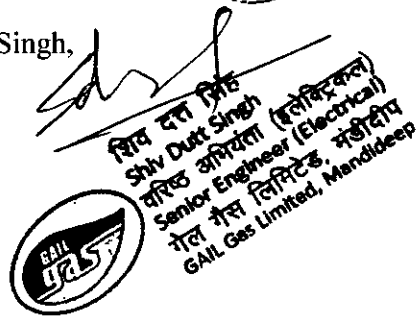 Singh,
शिव दत्त सिंह
Shiv Dutt Singh
वरिष्ठ अभियंता (इलेक्ट्रिकल)
Senior Engineer (Electrical)
गेल गैस लिमिटेड, मंडीदीप
GAIL Gas Limited, Mandideep
GAIL
gas